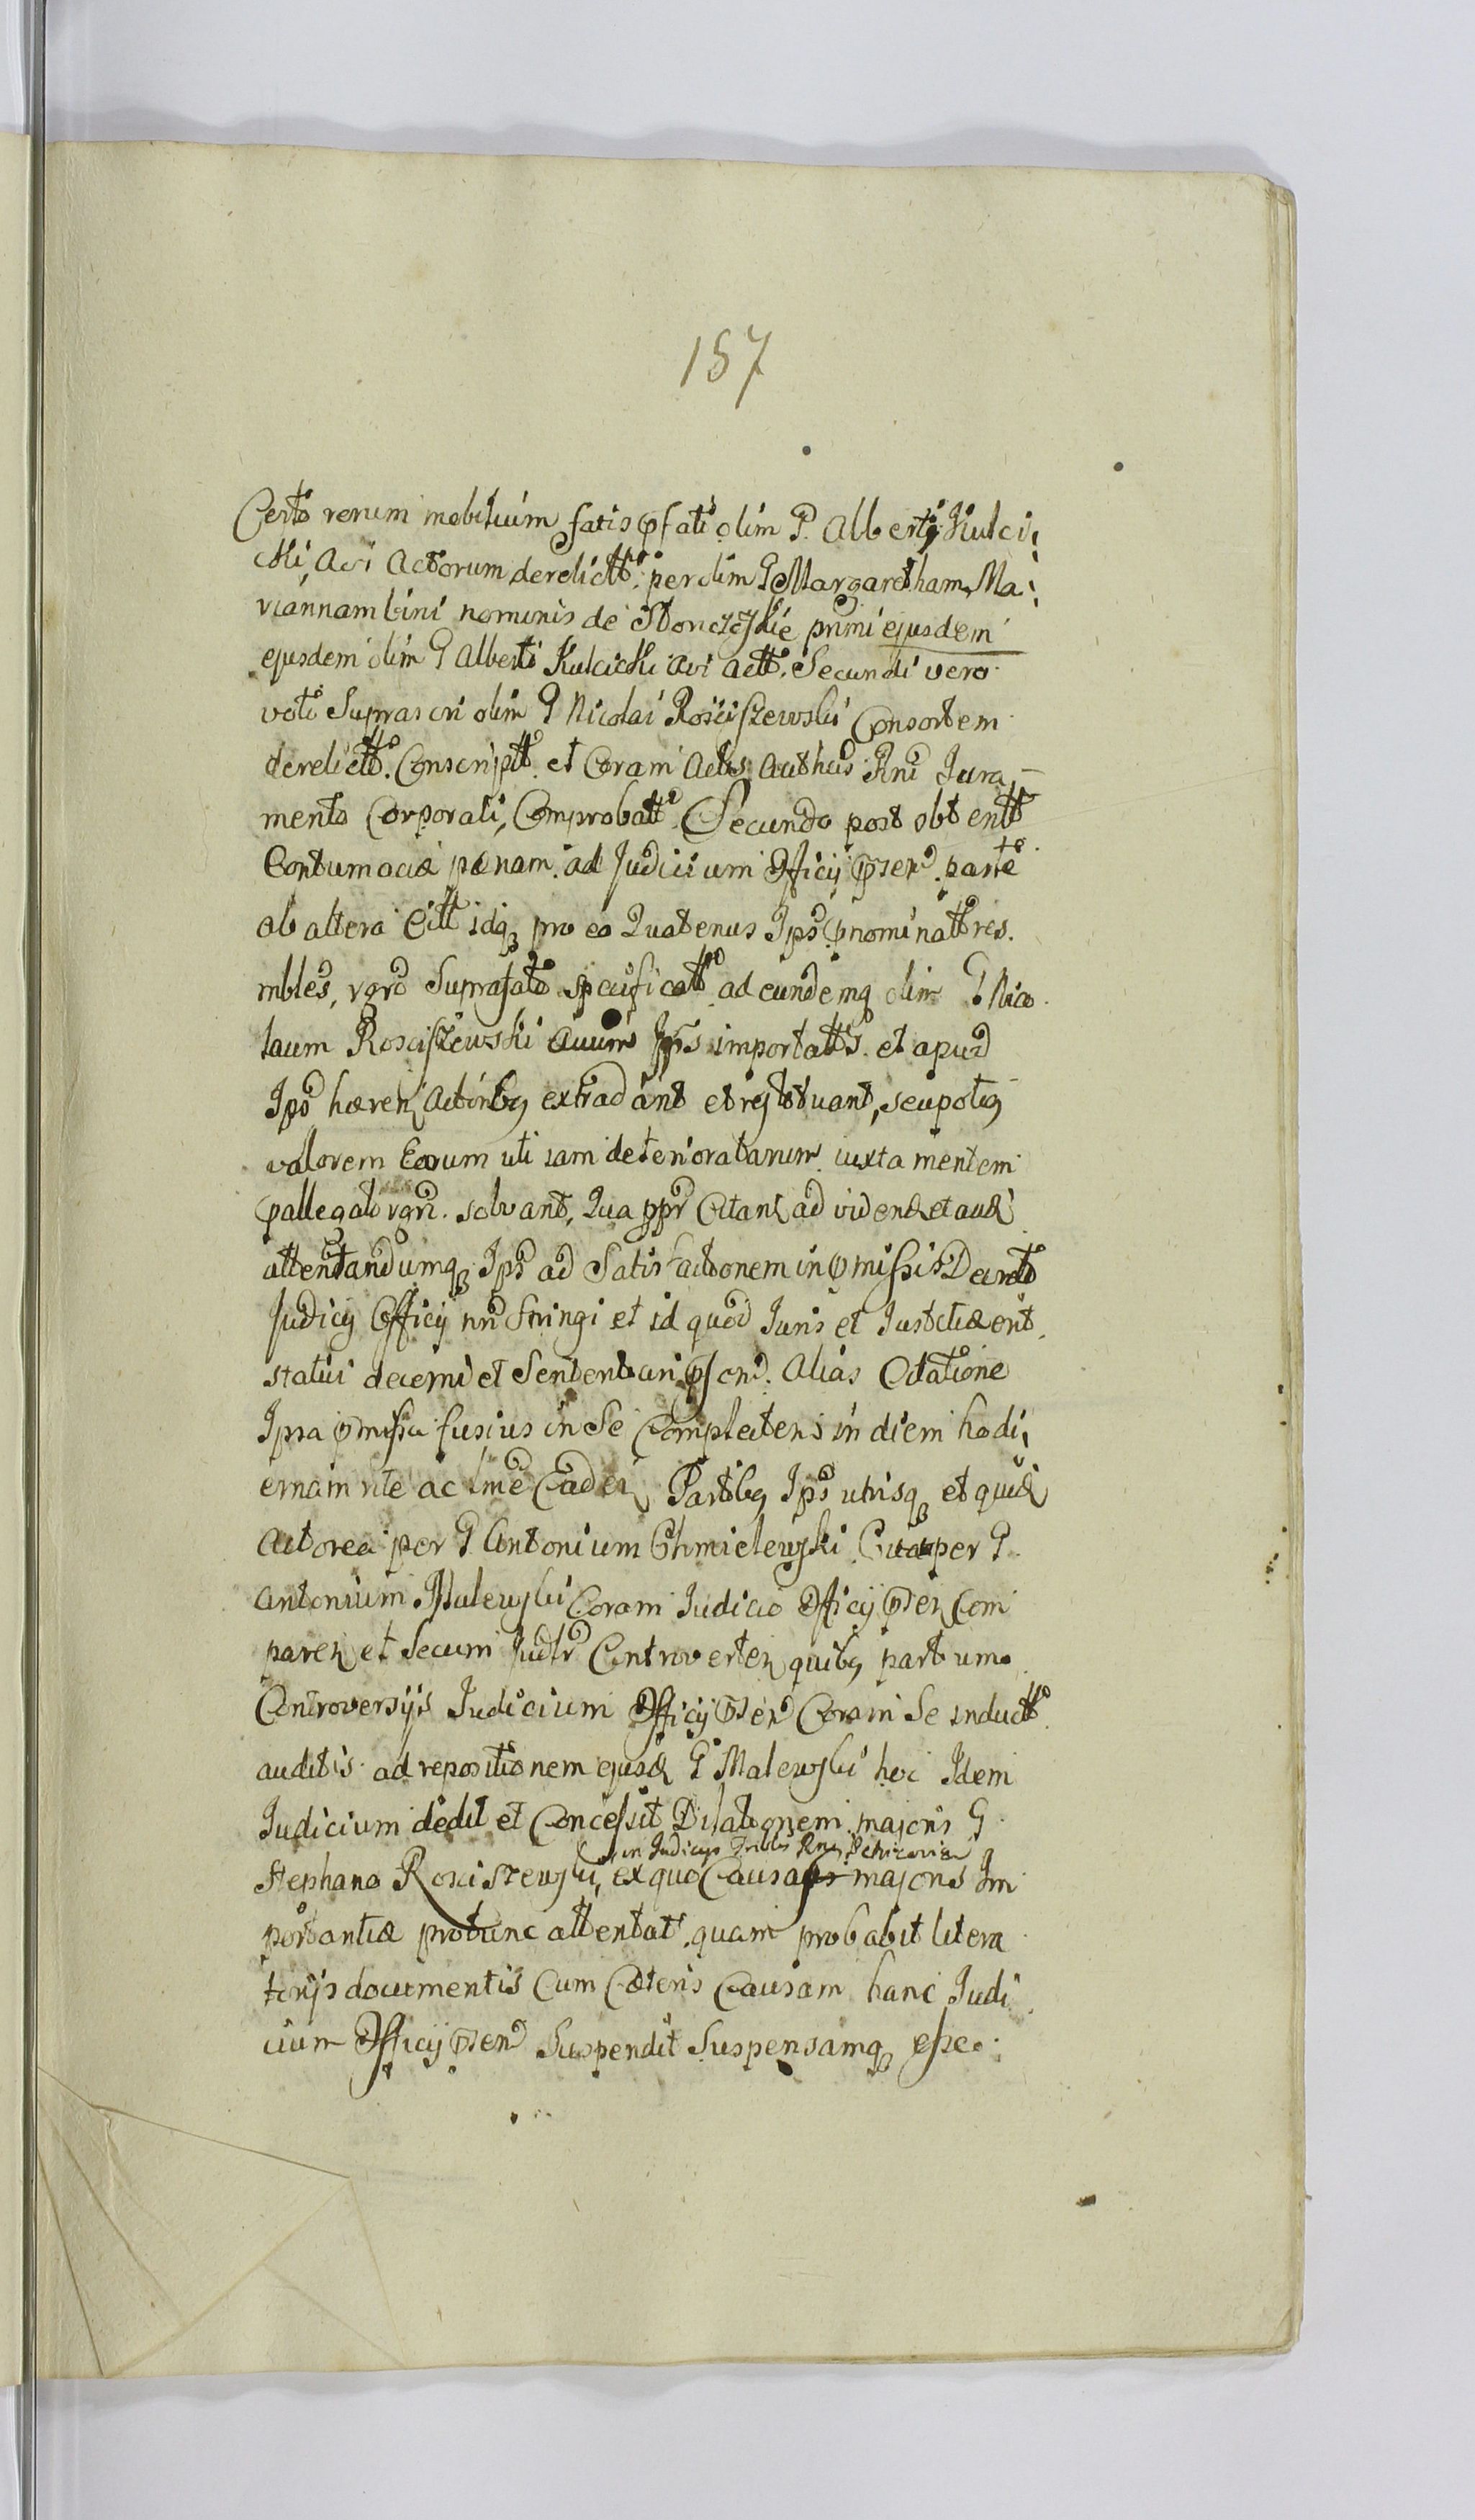 157
Certo rerum mobilium fatis pfati olim P. Alberti Kulci:
cki, Avi Actorum derelictt. per olim G Margaretham Ma:
riannam bini nominis de Stonczskie primi ejusdem
ejusdem olim G Alberti Kulcicki Avi Actt. Secundi vero
voti Suprascri olim G Nicolai Rosciszewski Consortem
derelictt. Conscriptt. et Coram Actis Authcis Rni Jura
mento Corporali, Comprobatt. Secundo post obtentt
Contumaciæ pænam ad Judicium Officij psen. parte
ab altera Citt idq pro eo Quatenus Ips pnominatt res
mbles, vgro Suprafato specificatt. ad eundemq olim G Nico
laum Rosciszewski avum Ips importatts. et apud
Ips haeren Actoribg extradant et restituant, seu potig
valorem Earum uti iam deterioratarum iuxta mentem
pallegati vgri. solvant, Qua ppr Citan ad videnđ et auđ
attentandumq Ips ad Satisfactionem in pmissis Decreto
Judicij Officij nri Stringi et id quod Juris et Justitiæ erit
statui decerni et Sententiari pscri. Alias Citatione
Ipsa pmissa fusius in Se Complectens in diem hodi:
ernam rite ac lme Caden Partibg Ips utrisq et quiđ
Actorea per G Antonium Chmielewski Cita per G
Antonium Malewski Coram Judicio Officij psen Com
paren et Secum Judlr Controverten quibg partium
Controversijs Judicium Officij psen Coram Se inductt
auditis ad repositionem ejusđ G Malewski hoc Idem
Judicium dedit et Concessit Dilationem majoris G
in Judicijs Triblis Rni
Stephano Rosciszewski, ex quo Causa majoris Im
portantiæ protunc attentat. quam probabit litera
torijs documentis Cum Cæteris Causam hanc Judi
cium Officij psen Suspendit Suspensamq esse.